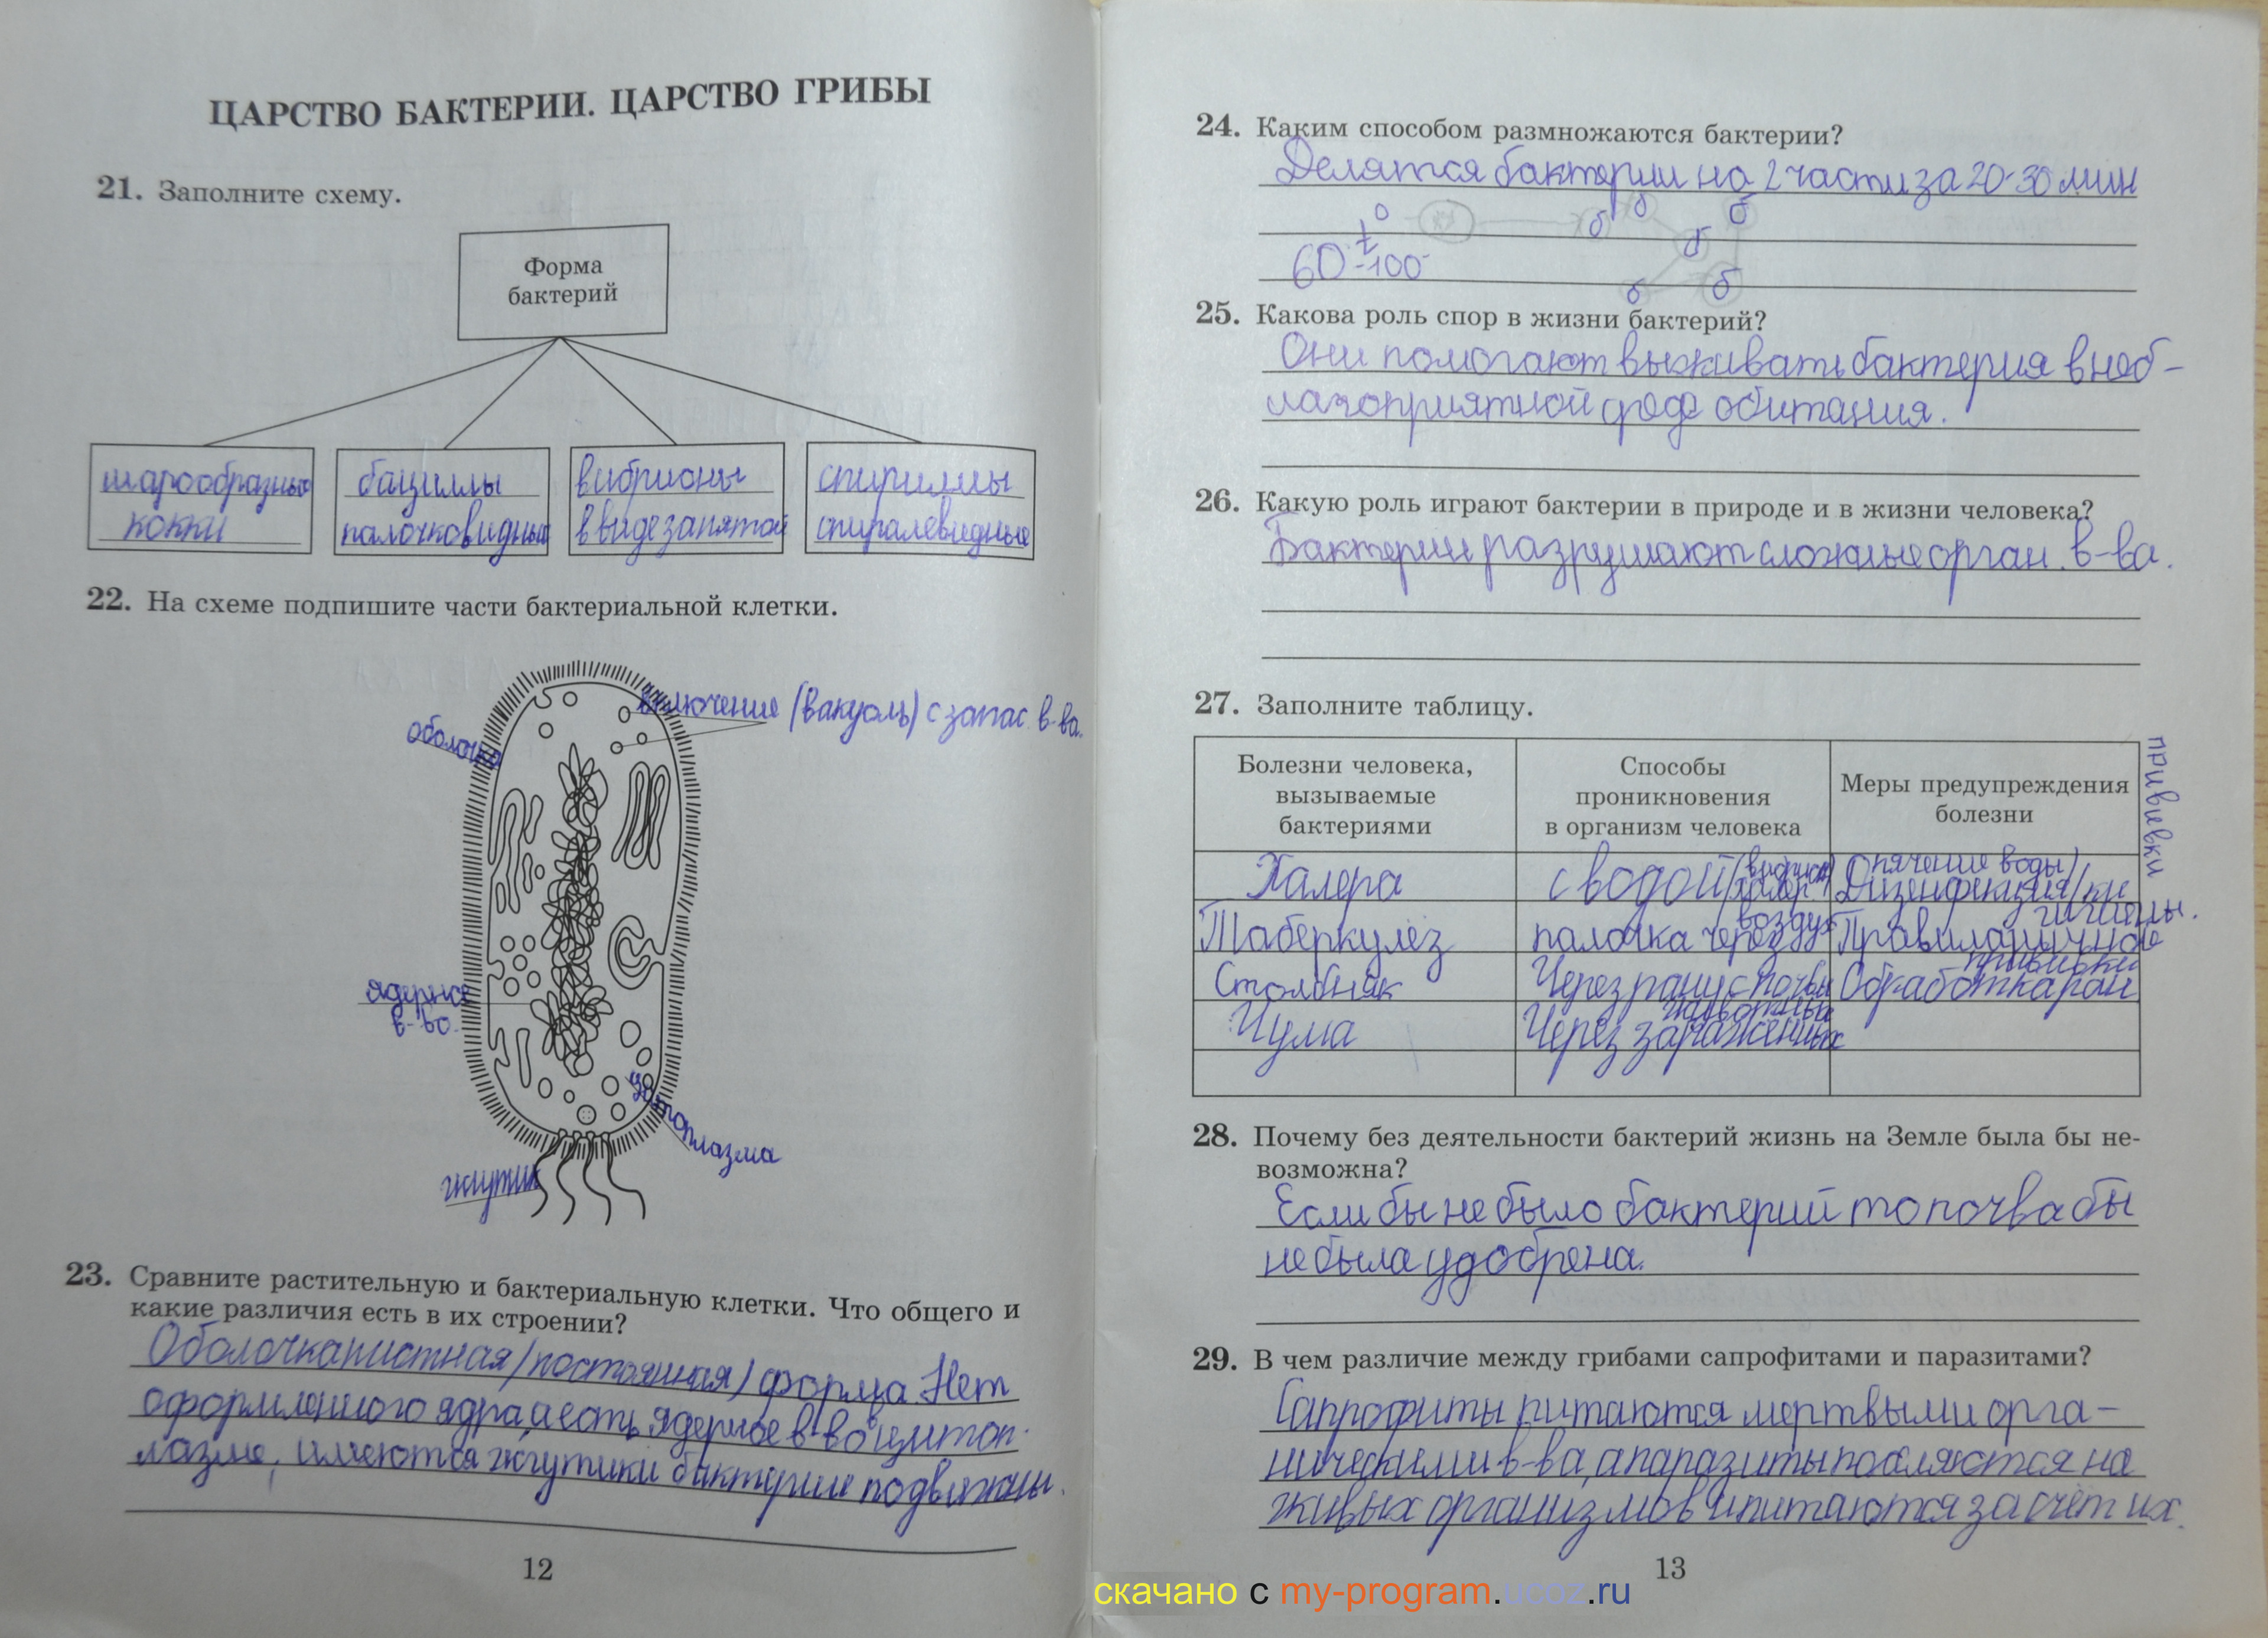 ЦАРСТВО БАКТЕРИИ. ЦАРСТВО ГРИБЫ
21. Заполните схему.
Форма
бактерий
шарообразные
кокки
бациллы
палочковидные
вибрионы
в виде запятой
спириллы
спиралевидные
22. На схеме подпишите части бактериальной клетки.
включение (вакуоль) с запас. в-ва.
оболочка
ядерное
в-во.
цитоплазма
жгутик
23. Сравните растительную и бактериальную клетки. Что общего и
какие различия есть в их строении?
Оболочка плотная (постоянная) форма. Нет
оформленного ядра, а есть ядерное в-во в цитоп-
лазме, имеются жгутики бактерии подвижны.
12
24. Каким способом размножаются бактерии?
Делятся бактерии на 2 части за 20-30 мин
60-100
25. Какова роль спор в жизни бактерий?
Они помогают выживать бактерия в неб-
лагоприятной среде обитания.
26. Какую роль играют бактерии в природе и в жизни человека?
Бактерии разрушают сложные орган. в-ва.
27. Заполните таблицу.
Болезни человека,
вызываемые
бактериями
Способы
проникновения
в организм человека
Меры предупреждения
болезни
прививки
Халера
с водой
воды)
Таберкулёз
палочка через воздух
Правила личной гигиены.
прививки
Столбняк
Через рану с почвы
Обработка ран
Чума
Через заражённых
28. Почему без деятельности бактерий жизнь на Земле была бы не-
возможна?
Если бы не было бактерий то почва бы
не была удобрена.
29. В чем различие между грибами сапрофитами и паразитами?
Сапрофиты питаются мертвыми орга-
ническими в-ва, а паразиты поселяются на
живых организмов и питаются за счёт их.
13
скачано с my-program.ucoz.ru